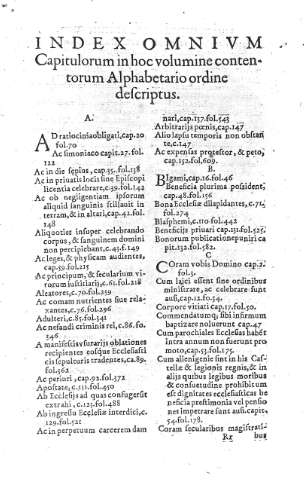 INDEX OMNIVM
Capitulorum in hoc volumine conten-
torum Alphabetario ordine
descriptus.
A.
AD ratiocinia obligati, cap.20
fol.70
Ac simoniaco capit.27. fol.
122
Ac in die septies, cap.35. fol.138
Ac in priuatis locis sine Episcopi
licentia celebrare, c.39. fol.142
Ac ob negligentiam ipsorum
aliquid sanguinis stillauit in
terram, & in altari, cap.42. fol.
148
Aliquoties insuper celebrando
corpus, & sanguinem domini
non percipiebant, c.45. f.149
Ac leges, & physicam audientes,
cap.59. fol.215
Ac principum, & secularium vi-
rorum iustitiarij, c.61. fol.218
Aleatores, c.70. fol.259
Ac comam nutrientes siue rela-
xantes, c.76. fol.296
Adulteri, c.85. fol.341
Ac nefandi criminis rei, c.86. fo.
346
A manifestis vsurarijs oblationes
recipientes eosque Ecclesiasti
cis sepulturis tradentes, ca.89.
fol.362
Ac periuri, cap.92. fol.372
Apostatæ, c.111. fol.450
Ab Ecclesijs ad quas confugerit
extrahi, c.125. fol.488
Ab ingressu Ecclesiæ interdici, c.
129. fol.521
Ac in perpetuum carcerem dam
nari, cap.137. fol.543
Arbitrarijs pœnis, cap.147
Alio lapsu temporis non obstan
te, c.147
Ac expensas protestor, & peto,
cap.152. fol.609.
B.
BIgami, cap.16. fol.46
Beneficia plurima possident,
cap.48. fol.156
Bona Ecclesiæ dilapidantes, c.71.
fol.274
Blasphemi, c.110. fol.442
Beneficijs priuari cap.131. fol.525.
Bonorum publicatione puniri ca
pit.132. fol.582.
C
COram vobis Domino cap.2.
fol.5.
Cum laici essent sine ordinibus
ministrare, ac celebrare sunt
ausi, cap.12. fol.34
Corpore vitiati cap.17. fol.50.
Commendatumq; sibi infirmum
baptizare noluerunt cap.47
Cum parochiales Ecclesias habēt
intra annum non fuerunt pro
moto, cap.53. fol.175.
Cum alienigenæ sint in his Cas-
tellæ & legionis regnis, & in
alijs quibus legibus moribus
& consuetudine prohibitum
est dignitates ecclesiasticas be
neficia præstimonia vel pensio
nes impetrare sunt ausi. capit.
54. fol.178.
Coram secularibus magistrati-
Rr bus